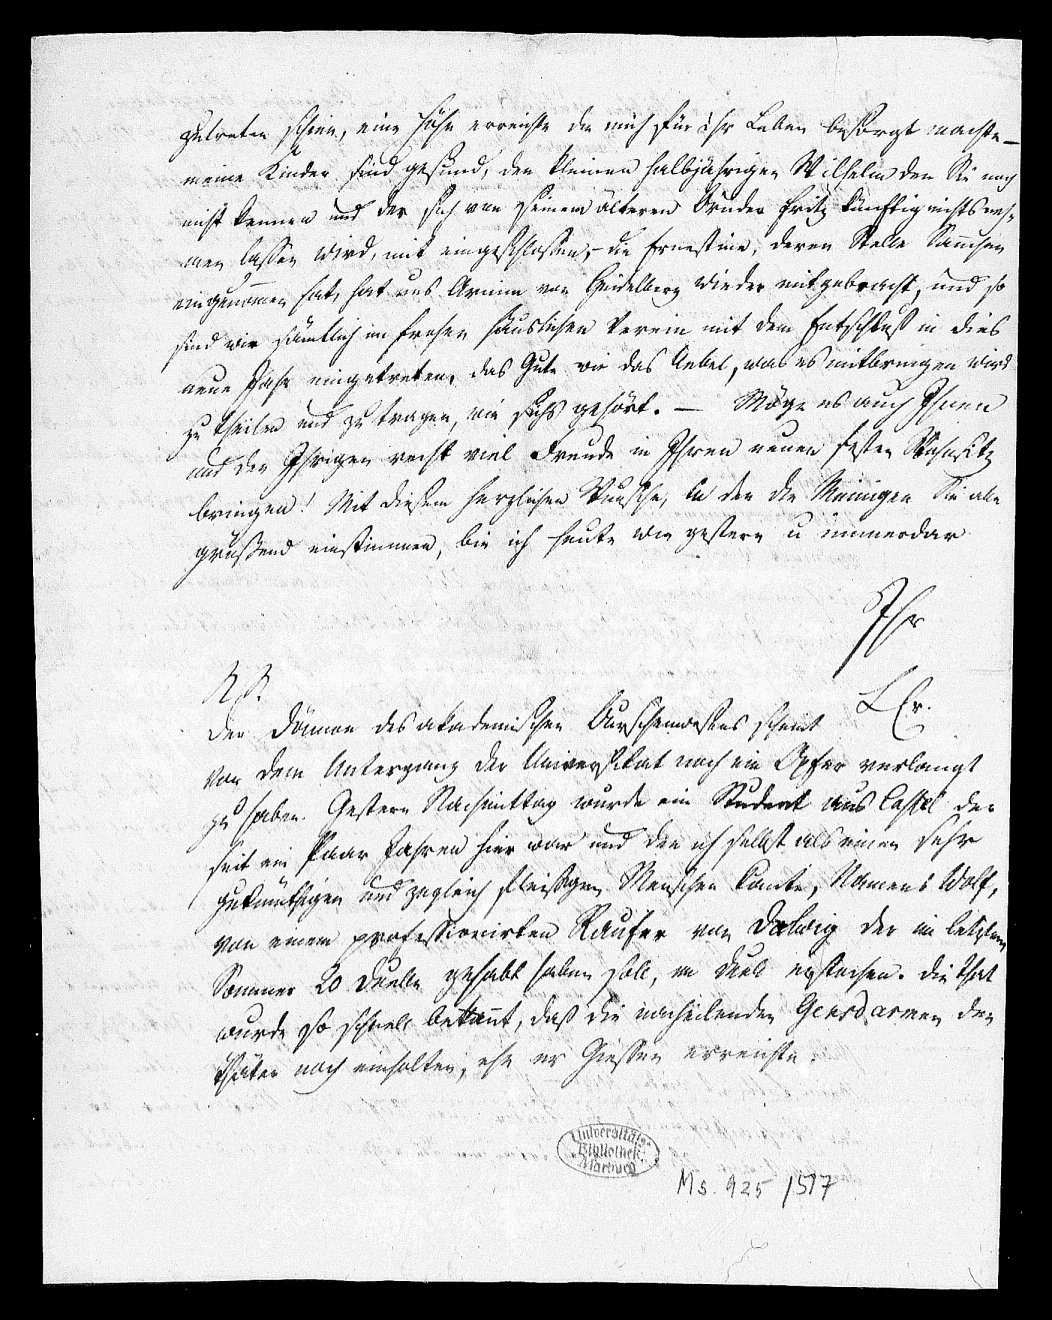 zutreten schien, eine Höhe erreichte die mich für ihr Leben besorgt machte –
meine Kinder sind gesund, den kleinen halbjährigen Wilhelm den Sie noch
nicht kennen und der sich von seinem älteren Bruder Fritz künftig nichts neh,,
men lassen wird, mit eingeschlossen, – die Ernestine, deren Stelle
eingenommen hat, hat uns von Heidelberg wieder mitgebracht, und so
sind wir sämtlich im frohen häuslichen Verein mit dem Entschluß in dies
neue Jahr eingetreten, das Gute wie das Uebel, was es mitbringen wird
zu theilen und zu tragen, wie sichs gehört. – Möge es auch Ihnen
und den Ihrigen recht viel Freude in Ihren neuen festen Wohnsitz
bringen! Mit diesem herzlichen Wunsche, in den die Meinigen Sie alle
grüßend einstimmen, bin ich heute wie gestern u immerdar
Ihr
LCr.
N.S.
Der Dämon des akademischen Burschenwesens scheint
von dem Untergang der Universitæt noch ein Opfer verlangt
zu haben. Gestern Nachmittag wurde ein Student aus Cassel der
seit ein Paar Jahren hier war und den ich selbst als einen sehr
gutmüthigen und zugleich fleißigen Menschen kante, Namens Wolf,
von einem professionirten Raufer von Dalwig der im letzten
Sommer 20 Duelle gehabt haben soll, im Duell erstochen. Die That
wurde so schnell bekannt, daß die nacheilenden Gensdarmen den
Thäter noch einholten, ehe er Giessen erreichte.
Universitäts-
Bibliothek
Marburg
Ms. 925/517